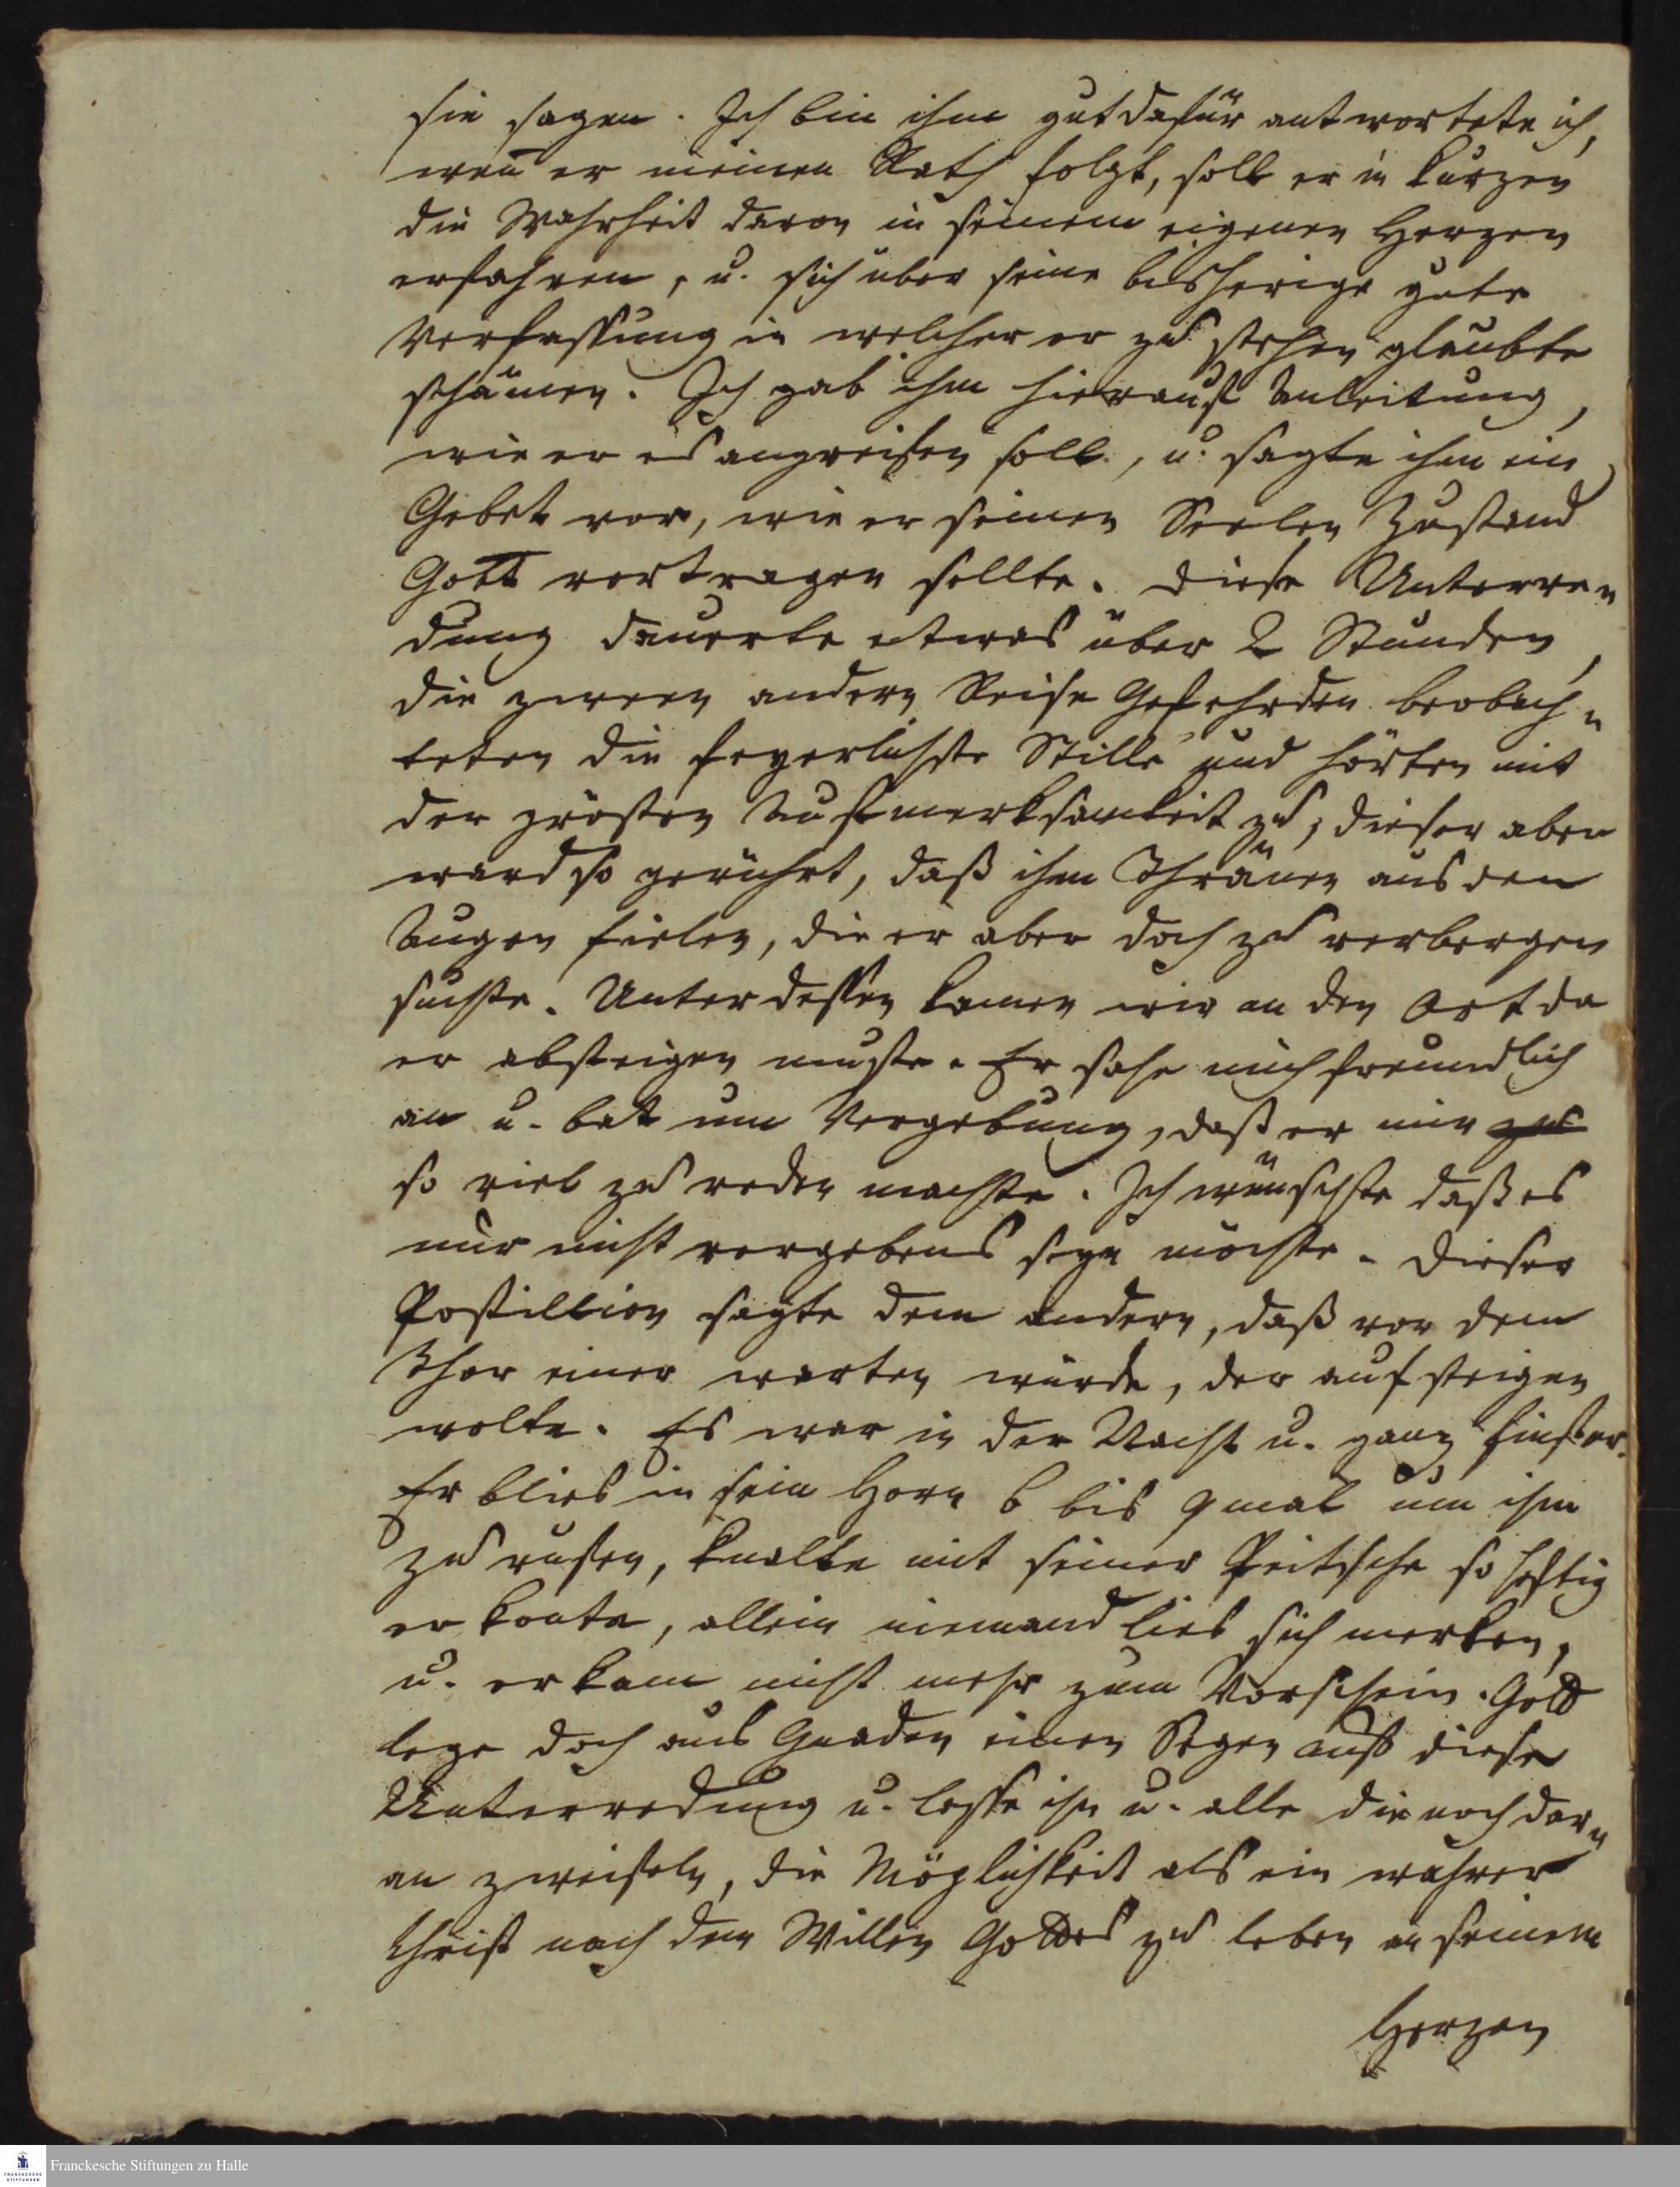 sie sagen. Ich bin ihm gut dafür antwortete ich,
wen̄ er meinen Rath folgt, soll er in kurzen
die Wahrheit davon in seinem eigenen Herzen
erfahren, u. sich über seine bisherige gute
Verfassung in welcher er zu stehen glaubte
schämen. Ich gab ihm hierauf Anleitung,
wie er es angreifen soll, u. sagte ihm ein
Gebet vor, wie er seinen Seelen Zustand
Gott vortragen sollte. Diese Unterre-
dung dauerte etwas über 2 Stunden,
die zween andern Reise Gefehrden beobach-
teten die feyerlichste Stille und hörten mit
der grösten Aufmerksamkeit zu, dieser aber
ward so gerührt, daß ihm Thränen aus den
Augen fielen, die er aber doch zu verbergen
suchte. Unterdessen kamen wir an den Ort da
er absteigen muste. Er sahe mich freundlich
an u. bat um Vergebung, daß er mir zu
so viel zu reden machte. Ich wünschte daß es
nur nicht vergebens seyn möchte. Dieser
Postillion sagte dem andern, daß vor dem
Thor einer warten würde, der aufsteigen
wolte. Es war in der Nacht u. ganz finster.
Er blies in sein Horn 6 bis 9 mal um ihm
zu rufen, knalte mit seiner Peitsche so heftig
er konte, allein niemand lies sich merken,
u. er kam nicht mehr zum Vorschein. Gott
lege doch aus Gnaden einen Segen auf diese
Unterredung u. lasse ihn u. alle die noch dar-
an zweifeln, die Möglichkeit als ein wahrer
Christ nach dem Willen Gottes zu leben an seinem
Herzen
FRANCKESCHE
STIFTUNGEN
Franckesche Stiftungen zu Halle